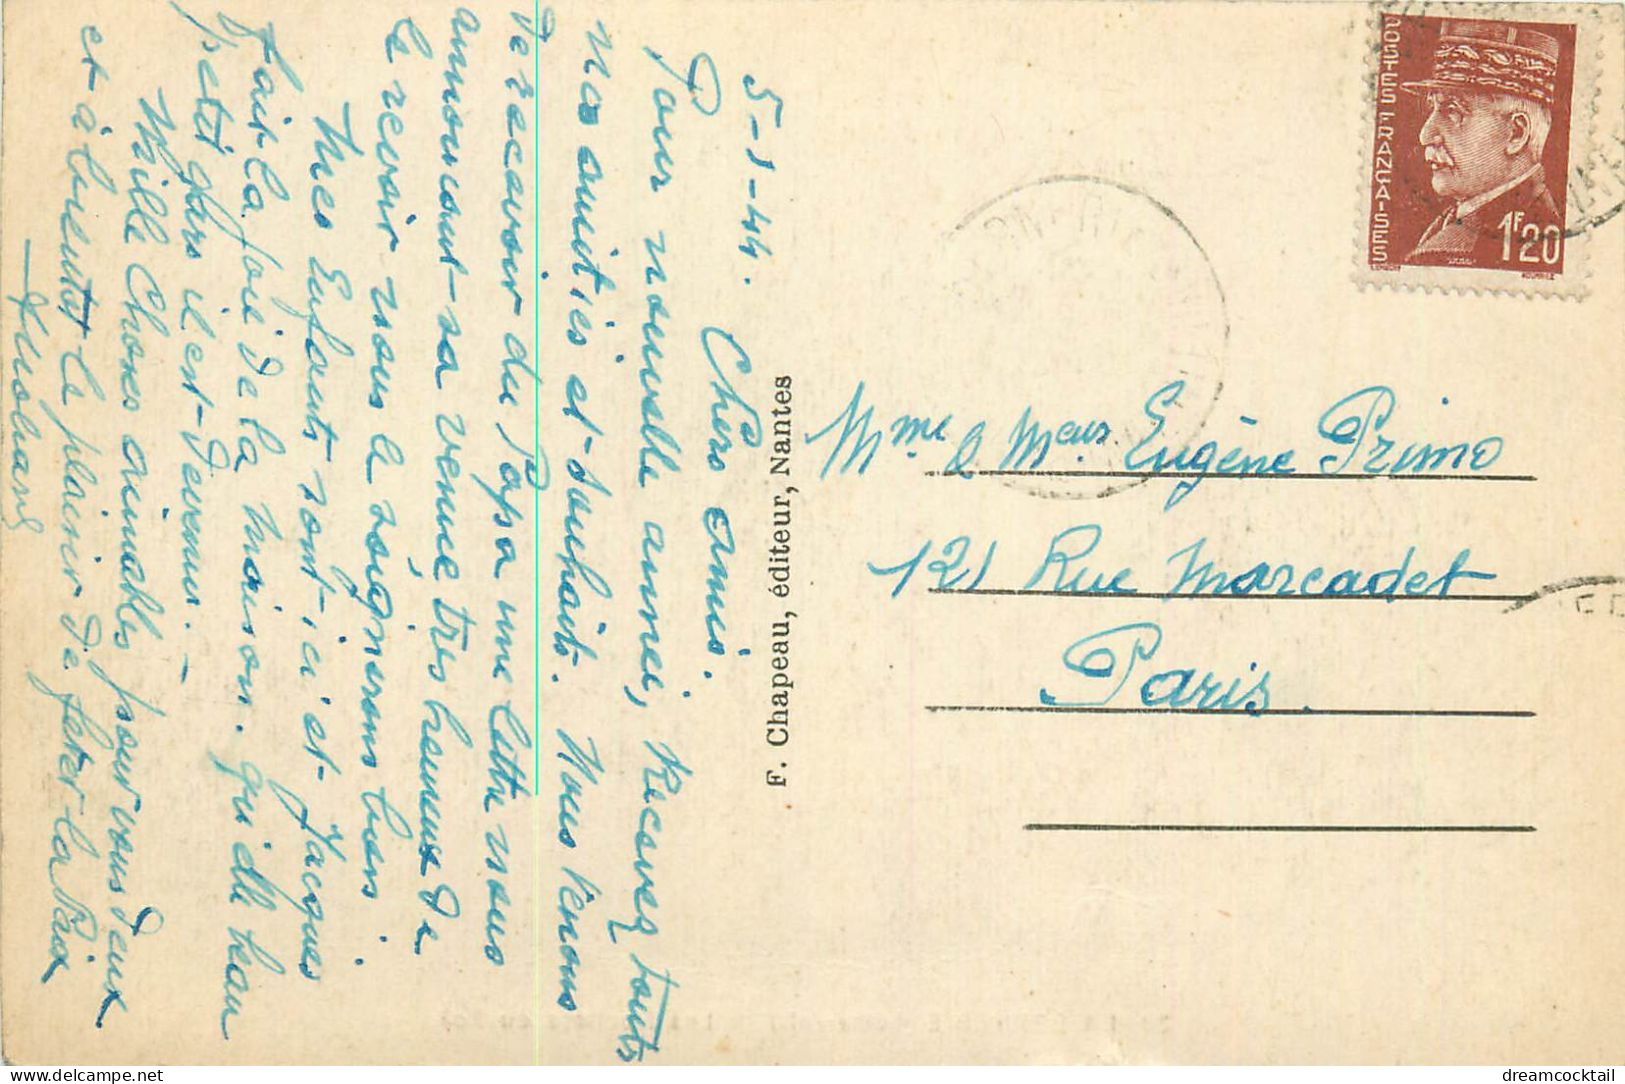 5-1-44.
Chers Amis.
Pour nouvelle année, Recevez touts
nos amitiés et souhaits. Nous venons
de recevoir du Papa une lettre nous
annoncant sa venue très heureux de
le revoir nous le soignerons bien.
Mes Enfants sont ici et Jacques
fait la joie de la maison. quel beau
petit gars il est devenu. -
Mille Choses aimables pour vous deux
et à bientot le plaisir de feter la Paix
POSTES FRANCAISES
1F20
Mme & Meur Eugène Primo
121 Rue Marcadet
Paris.
F. Chapeau, éditeur, Nantes
dreamcocktail